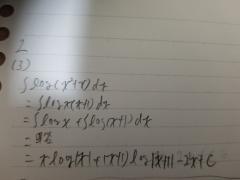 2
(3)
∫log(x²+x)dx
=∫log x(x+1)dx
=∫log x+∫log(x+1)dx
=
=x log|x|+(x+1)log|x+1|-2x+C